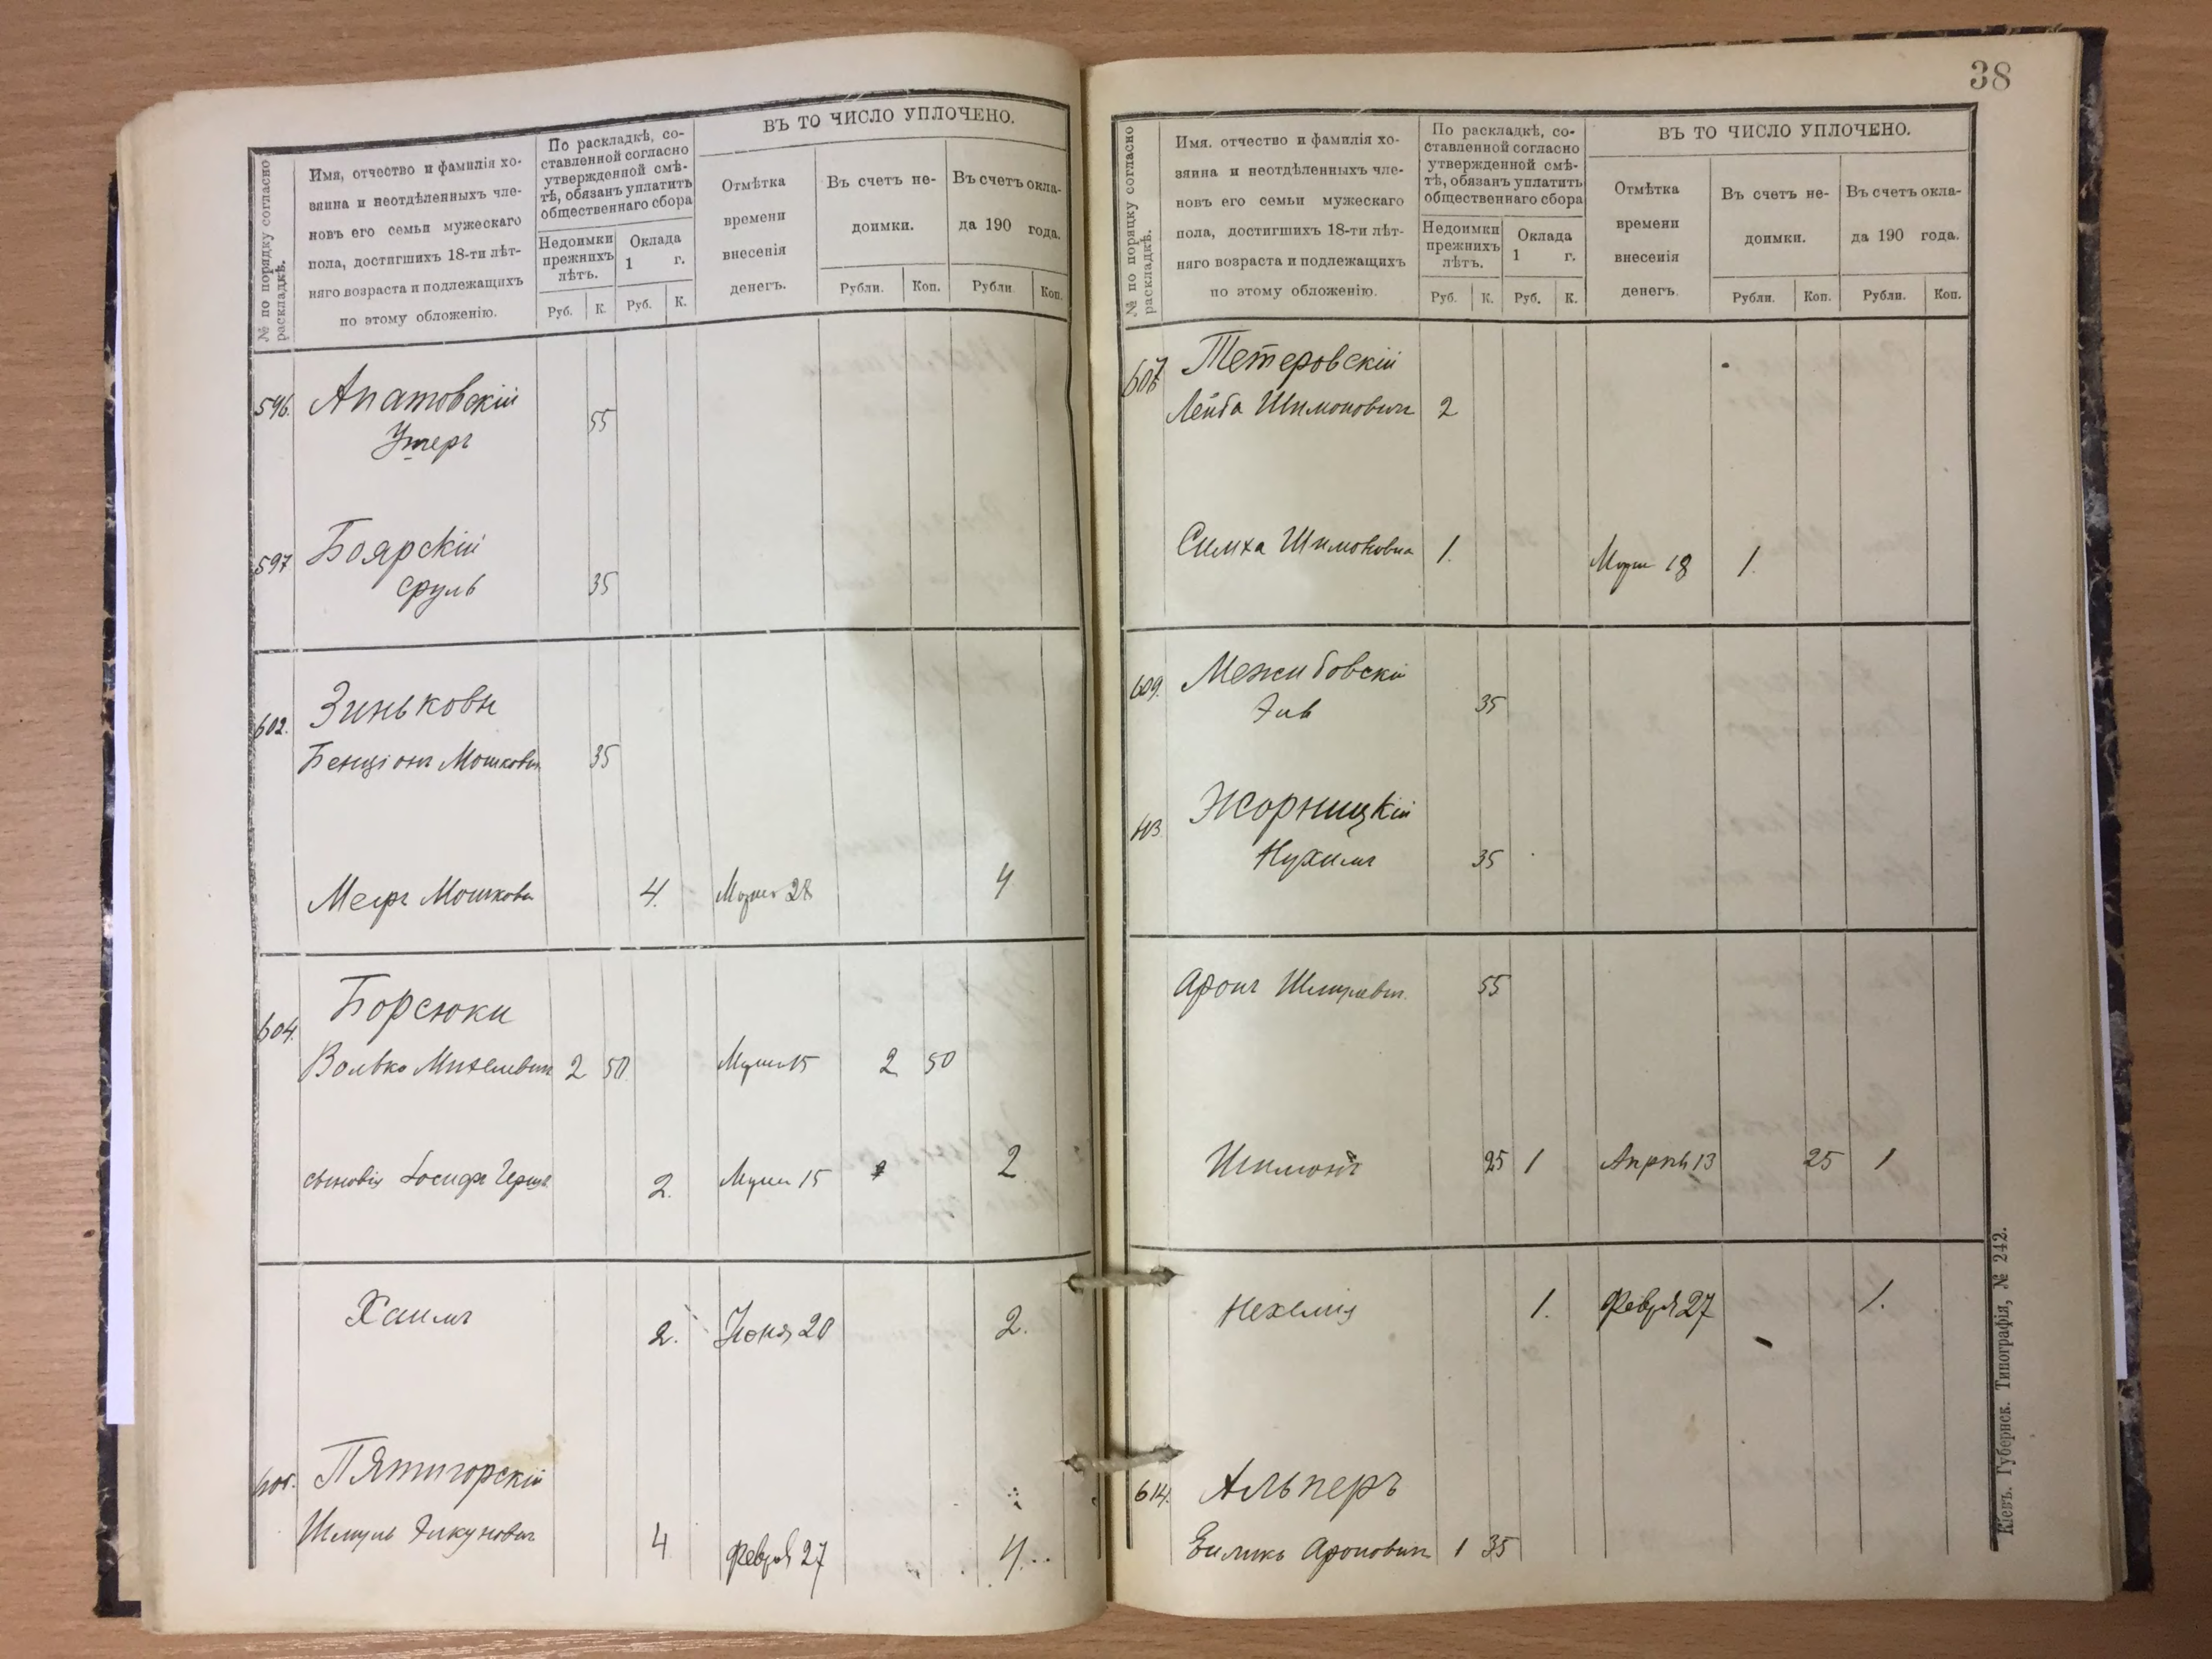 38
№ по порядку согласно раскладкѣ.
Имя, отчество и фамилія хо-
зяина и неотдѣленныхъ чле-
новъ его семьи мужескаго
пола, достигшихъ 18-ти лѣт-
няго возраста и подлежащихъ
по этому обложенію.
По раскладкѣ, со-
ставленной согласно
утвержденной смѣ-
тѣ, обязанъ уплатить
общественнаго сбора
Недоимки
прежнихъ
лѣтъ.
Оклада
1 г.
Руб. К. Руб. К.
ВЪ ТО ЧИСЛО УПЛОЧЕНО.
Отмѣтка
времени
внесенія
денегъ.
Въ счетъ не-
доимки.
Въ счетъ окла-
да 190 года.
Рубли. Коп. Рубли. Коп.
596. Апатовскій
Умеръ 55
597 Боярскій
Сруль 35
602. Зиньковы
Бенціонъ Мошковъ 35
Мееръ Мошковъ 4. Марта 28 4
604. Борсюки
Волько Михелевич 2 50 Марта 15 2 50
сыновья Іосифъ Герш 2. Марта 15 2
Хаимъ 2. Іюня 20 2.
605. Пятигорскій
Шмуль Элкуновичъ 4 Февраля 27 4
№ по поряцку согласно раскладкѣ.
Имя. отчество и фамилія хо-
зяина и неотдѣленныхъ чле-
новъ его семьи мужескаго
пола, достигшихъ 18-ти лѣт-
няго возраста и подлежащихъ
по этому обложенію.
По раскладкѣ, со-
ставленной согласно
утвержденной смѣ-
тѣ, обязанъ уплатить
общественнаго сбора
Недоимки
прежнихъ
лѣтъ.
Оклада
1 г.
Руб. К. Руб. К.
ВЪ ТО ЧИСЛО УПЛОЧЕНО.
Отмѣтка
времени
внесенія
денегъ.
Въ счетъ не-
доимки.
Въ счетъ окла-
да 190 года.
Рубли. Коп. Рубли. Коп.
607 Тетеровскій
Лейба Шимоновичъ 2
Симха Шимоновичъ 1. Марта 18 1.
609. Межибовскій
35
Жорницкій
Нухимъ 35
Аронъ Шмулевич. 55
Шимонъ 25 1 Апрѣль 13 25 1
Нехемія 1. Февраля 27 1.
614. Альперъ
Аронович 1 35
Кіевъ. Губернск. Типографія, № 242.